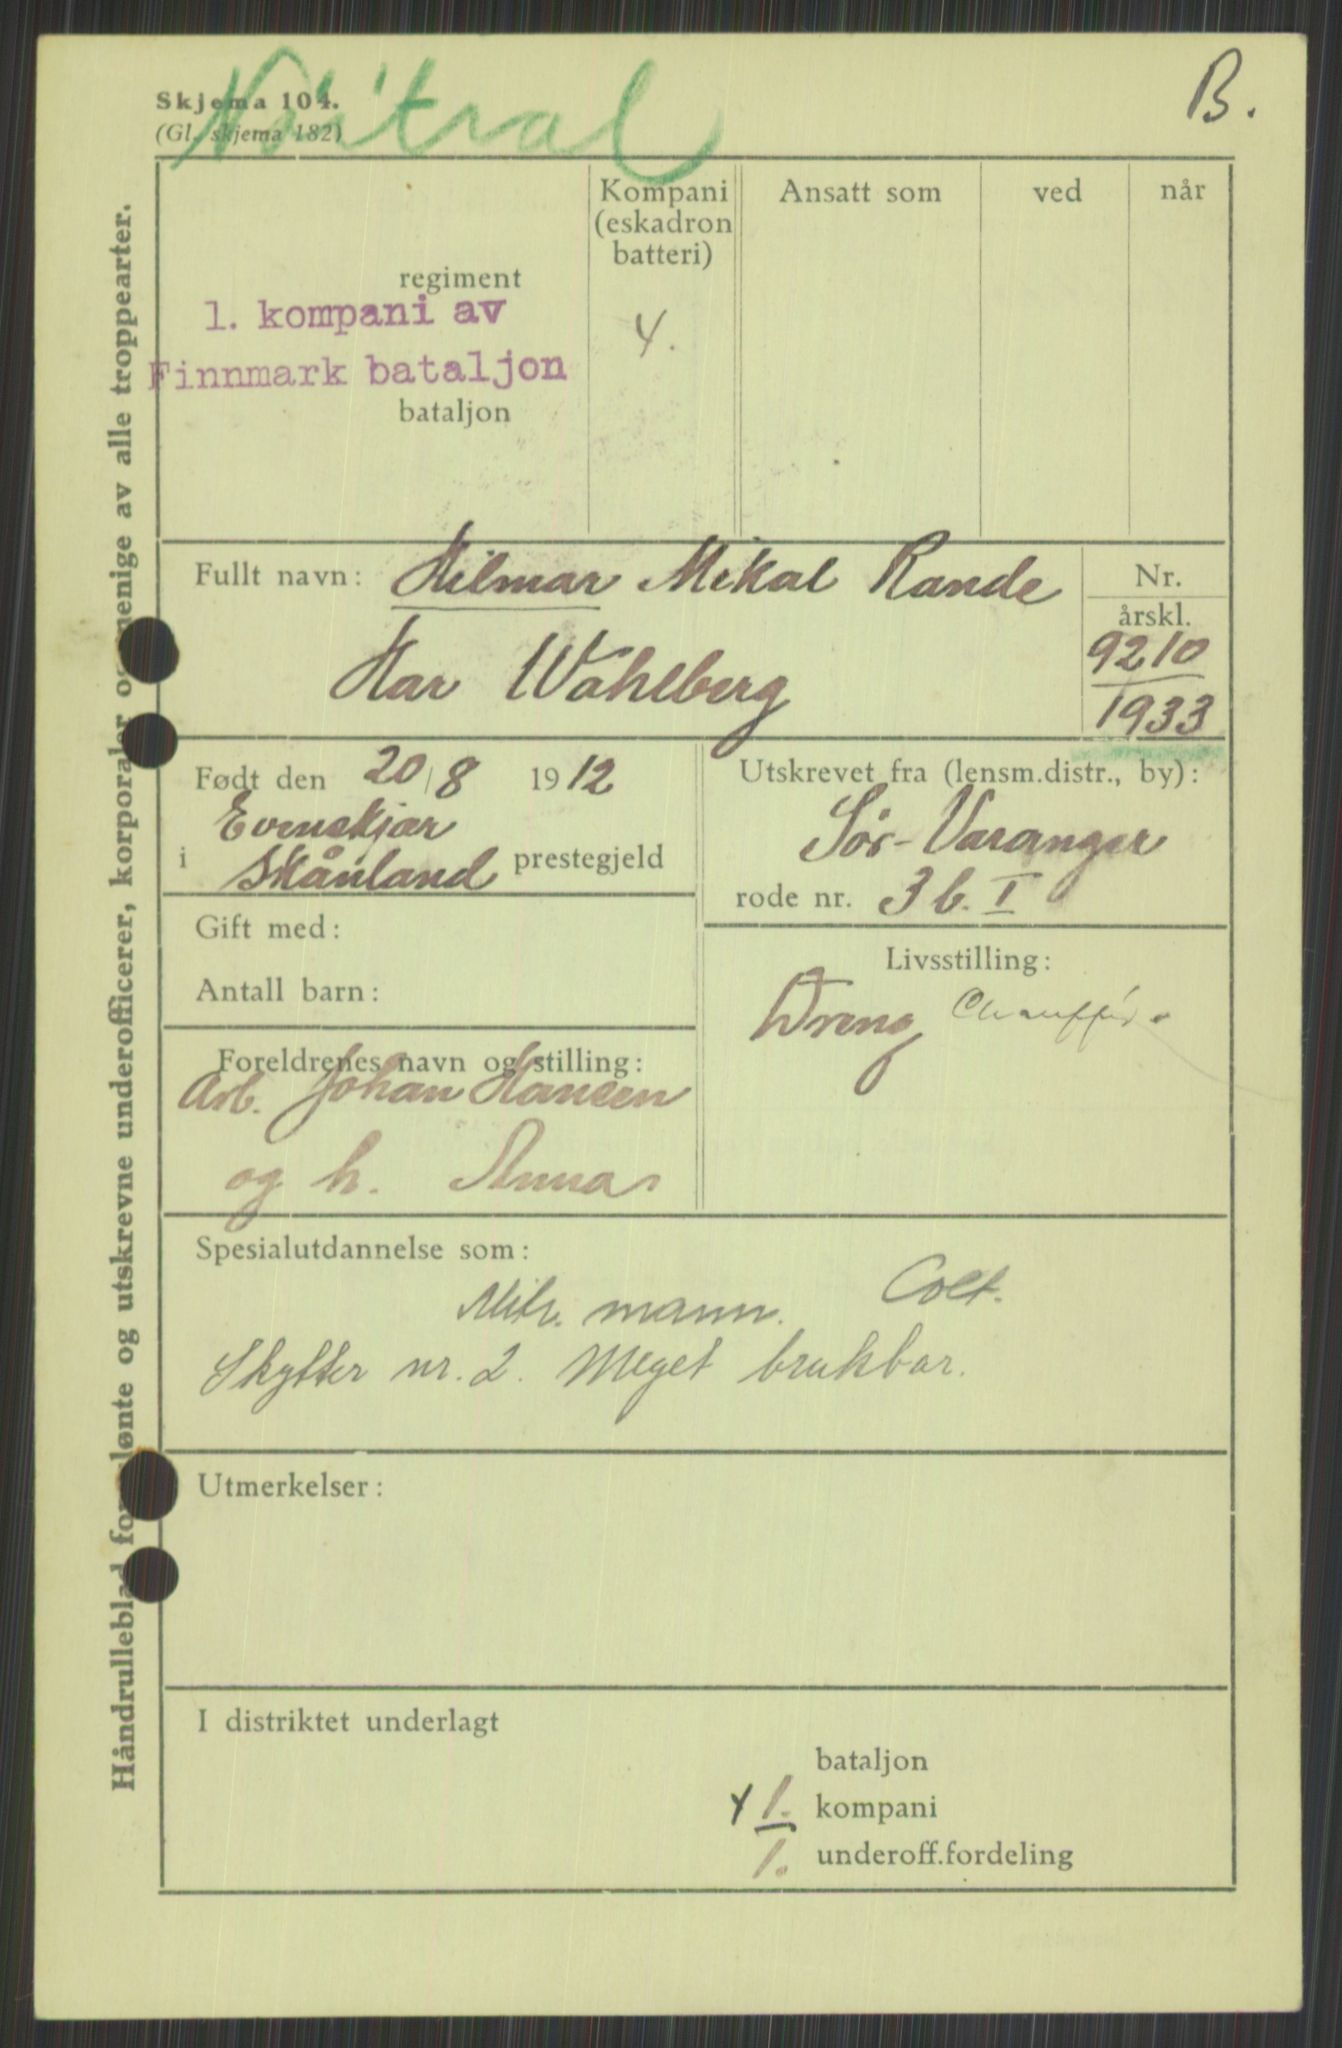 Nøitral
B.
Skjema 104.
(Gl. skjema 182)
Håndrulleblad for lønte og utskrevne underofficerer, korporaler og menige av alle troppearter.
Kompani
(eskadron
batteri)
Ansatt som
ved
når
regiment
1. kompani av
Finnmark bataljon
bataljon
4.
Fullt navn: Hilmar Mikal Rande
Har Wahlberg
Nr.
årskl.
9210
1933
Født den 20/8 1912
Evenskjær
i Skånland prestegjeld
Utskrevet fra (lensm.distr., by):
Sør-Varanger
rode nr. 3 b. I
Gift med:
Antall barn:
Livsstilling:
Dreng Chauffør
Foreldrenes navn og stilling:
Arb. Johan Hansen
og h. Anna
Spesialutdannelse som:
Mitr. mann. Colt.
Skytter nr. 2. Meget brukbar.
Utmerkelser:
I distriktet underlagt
bataljon
1. kompani
1. underoff.fordeling